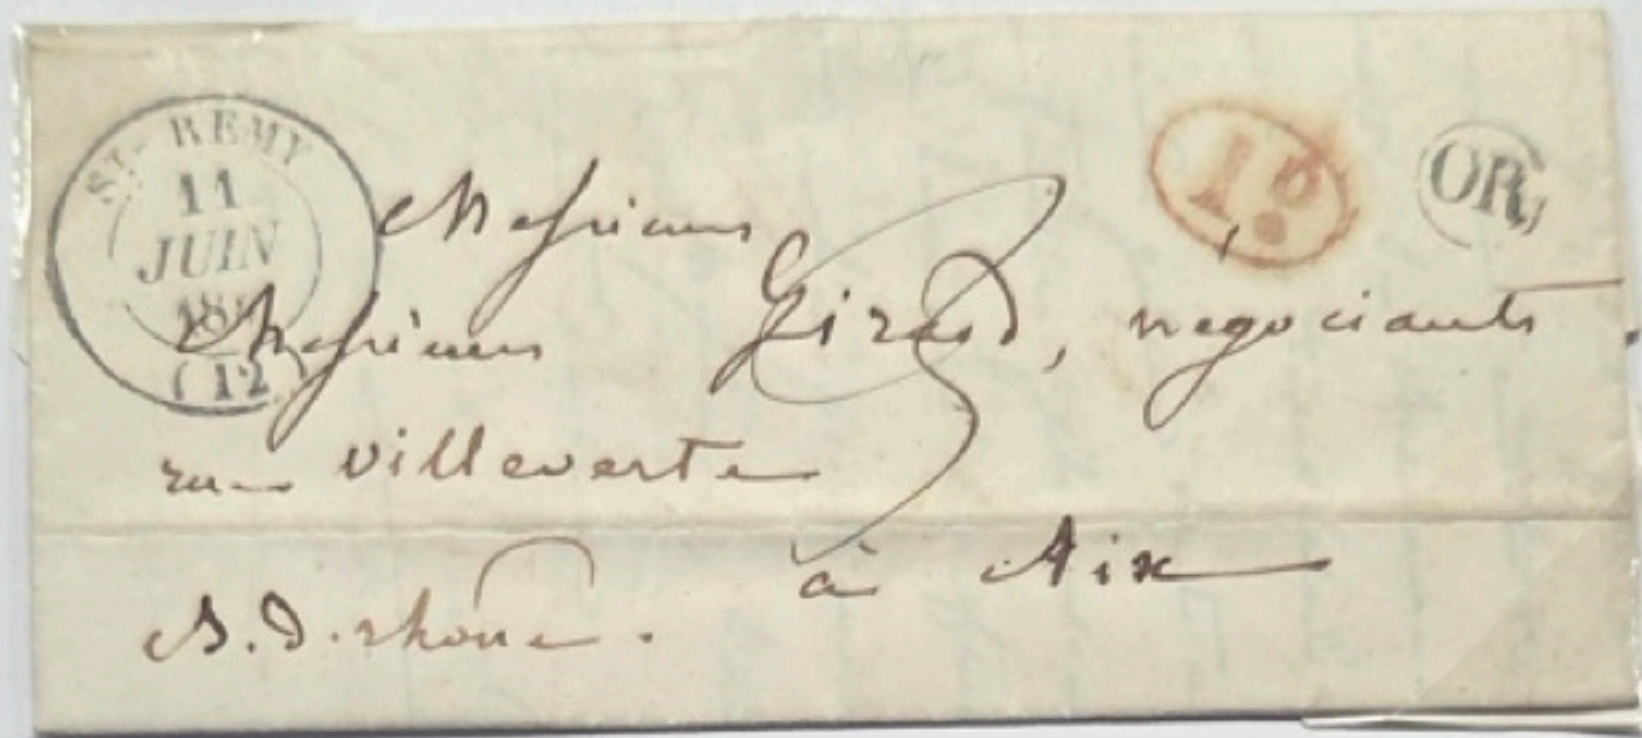 ST- REMY
11
JUIN
18
(12)
1 D
OR
Messieurs
Messieurs Girard, négociants.
rue villeverte
à Aix
B. D. rhone.